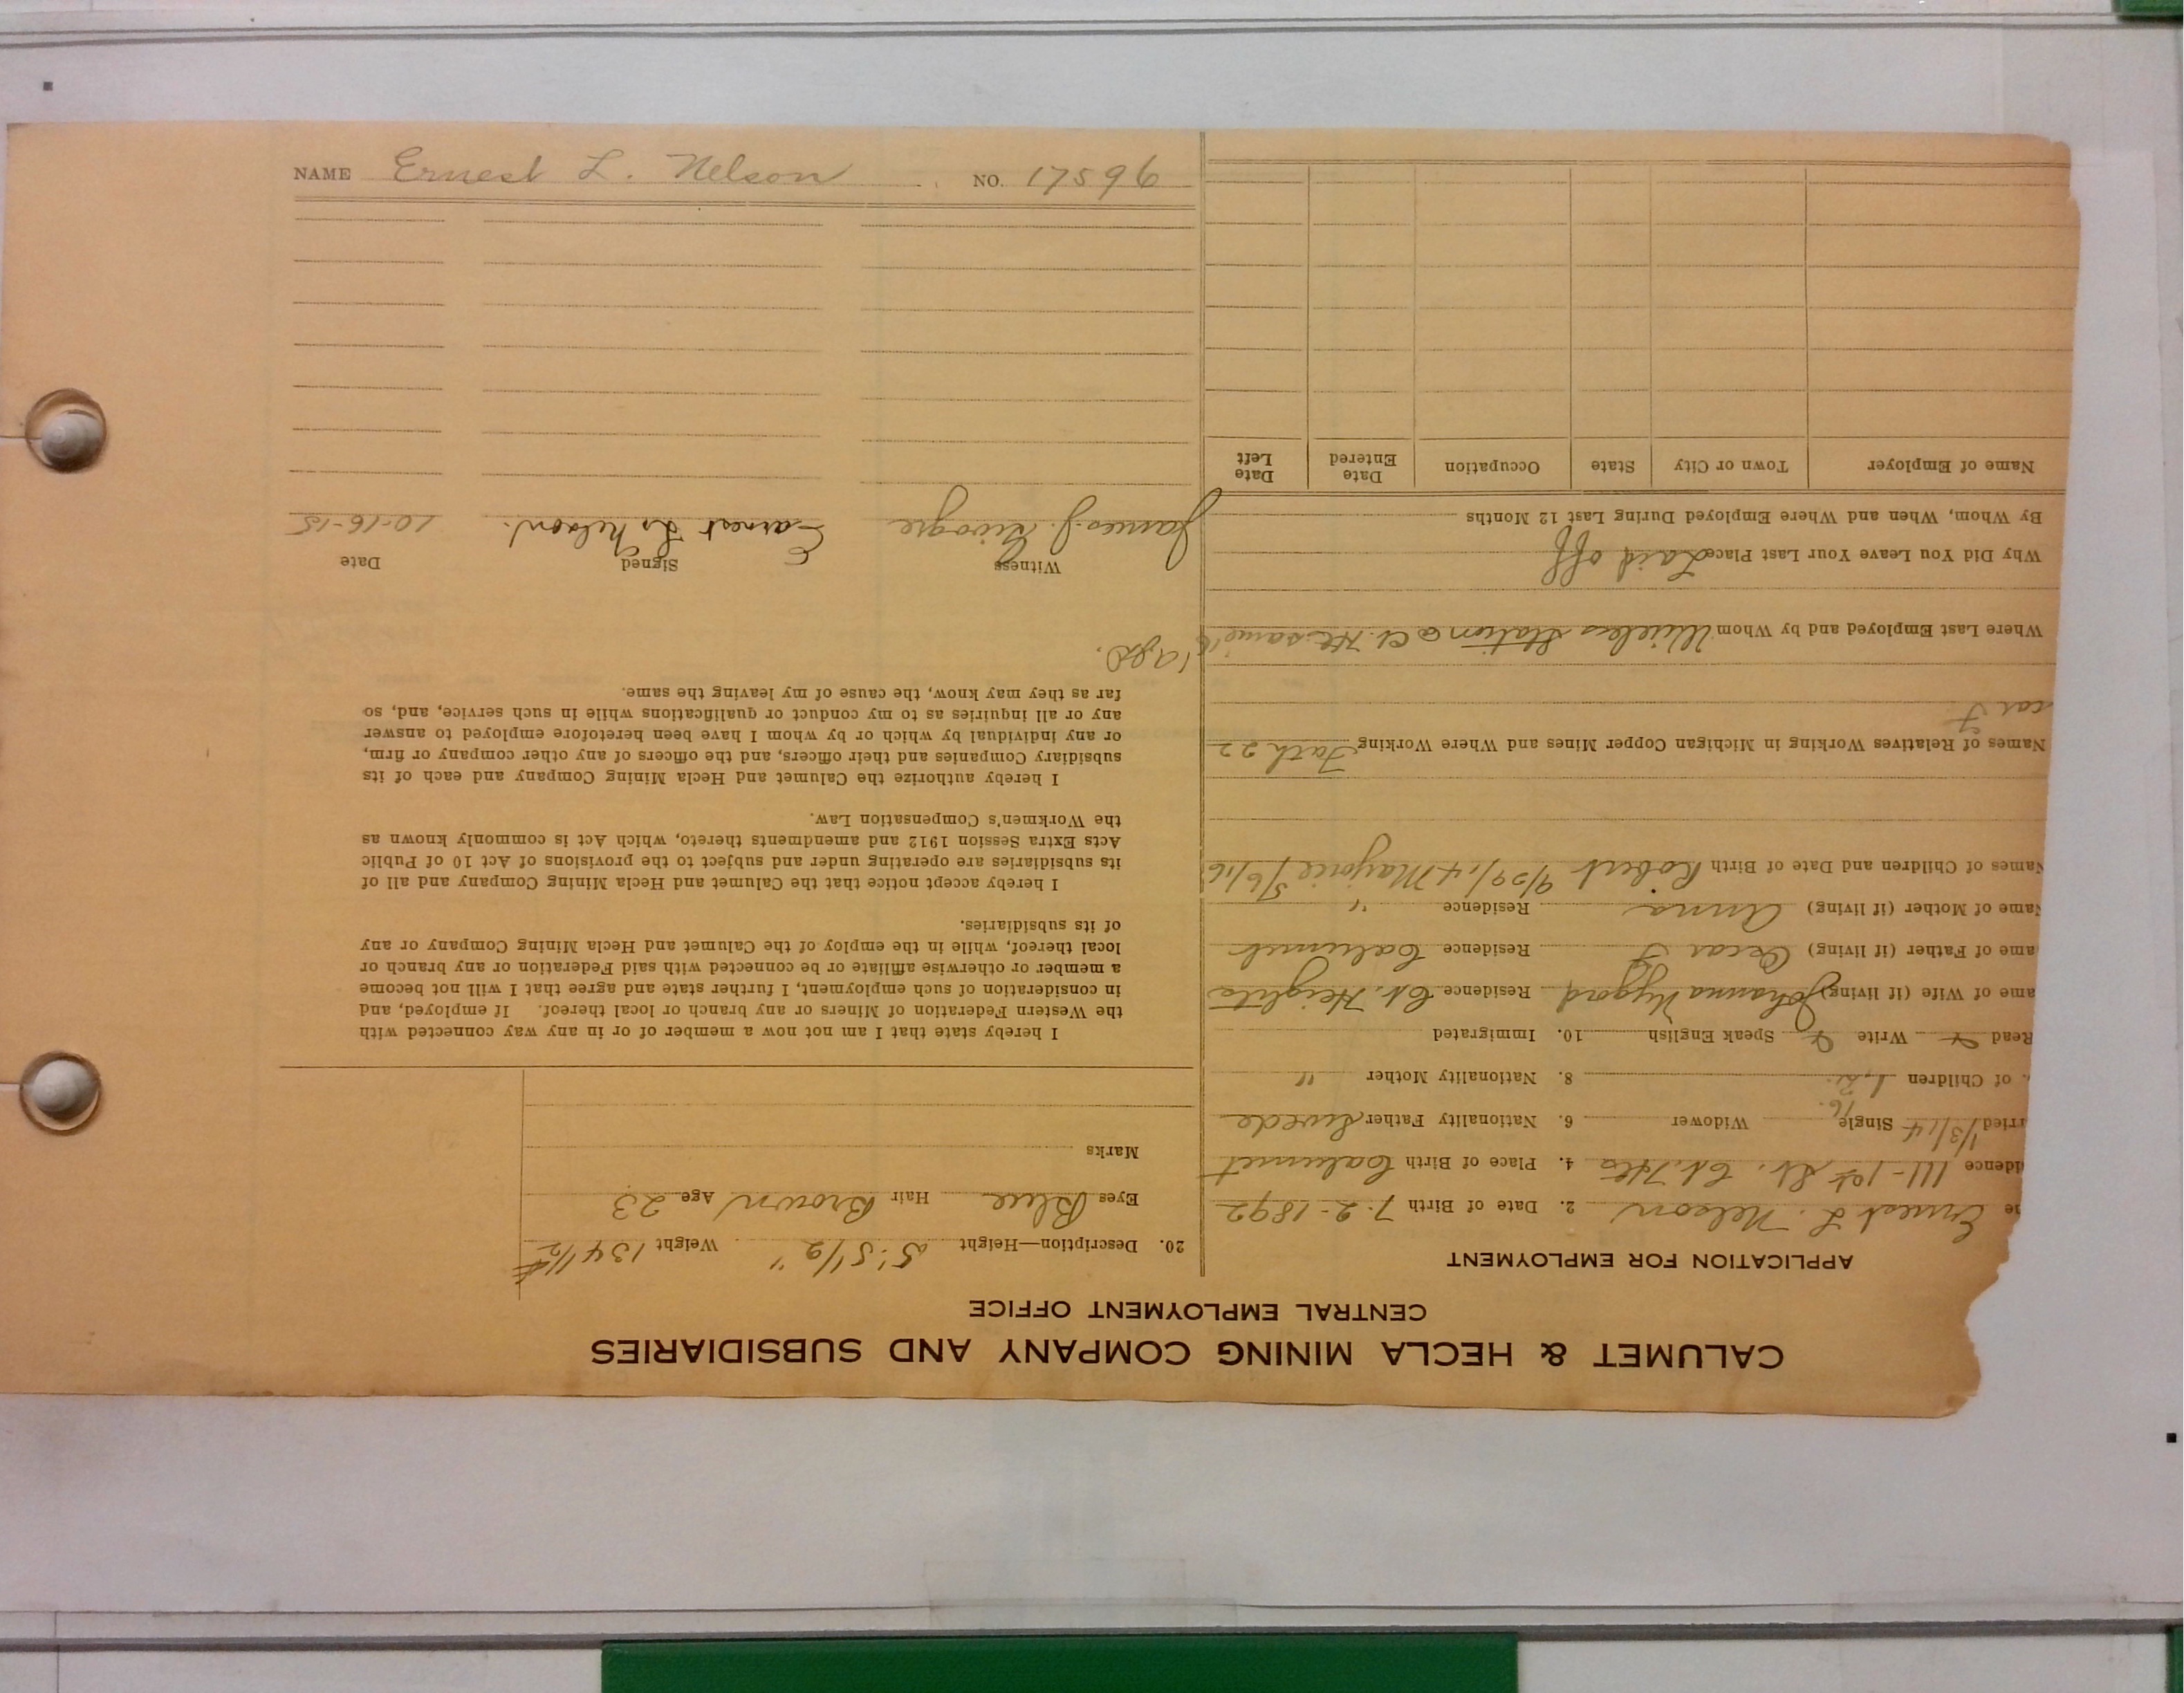 NAME Ernest L. Nelson NO. 17596
CALUMET & HECLA MINING COMPANY AND SUBSIDIARIES
CENTRAL EMPLOYMENT OFFICE
APPLICATION FOR EMPLOYMENT
me Ernest L. Nelson 2. Date of Birth 7-2-1892
idence 111-1st St. Cl. Hts 4. Place of Birth Calumet
rried 1/3/14 Single Widower 6. Nationality Father Swede
. of Children 1, 2 8. Nationality Mother "
Read Write Speak English 10. Immigrated
ame of Wife (if living) Johanna Nygard Residence Cl. Heights
ame of Father (if living) Oscar F Residence Calumet
Name of Mother (if living) Anna Residence "
Names of Children and Date of Birth Robert 9/29/14 Marjorie 5/6/16
Names of Relatives Working in Michigan Copper Mines and Where Working Fath 22
car F
Where Last Employed and by Whom Wireless Station @ Cl. Hts. same
Why Did You Leave Your Last Place Laid off
By Whom, When and Where Employed During Last 12 Months
Name of Employer Town or City State Occupation Date Entered Date Left
20. Description—Height 5' 5 1/2" Weight 134 1/2 #
Eyes Blue Hair Brown Age 23
Marks
I hereby state that I am not now a member of or in any way connected with
the Western Federation of Miners or any branch or local thereof. If employed, and
in consideration of such employment, I further state and agree that I will not become
a member or otherwise affiliate or be connected with said Federation or any branch or
local thereof, while in the employ of the Calumet and Hecla Mining Company or any
of its subsidiaries.
I hereby accept notice that the Calumet and Hecla Mining Company and all of
its subsidiaries are operating under and subject to the provisions of Act 10 of Public
Acts Extra Session 1912 and amendments thereto, which Act is commonly known as
the Workmen's Compensation Law.
I hereby authorize the Calumet and Hecla Mining Company and each of its
subsidiary Companies and their officers, and the officers of any other company or firm,
or any individual by which or by whom I have been heretofore employed to answer
any or all inquiries as to my conduct or qualifications while in such service, and, so
far as they may know, the cause of my leaving the same.
Witness Signed Date
James J. Earnest L. Nelson. 10-16-15